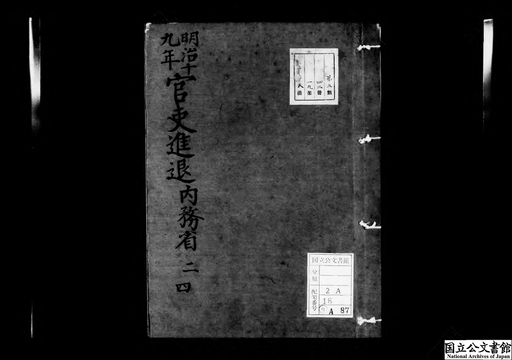 明治十
九年
官吏進退内務省 二四
国立公文書館
分類
配架番号
2 A
18
A 87
国立公文書館
National Archives of Japan